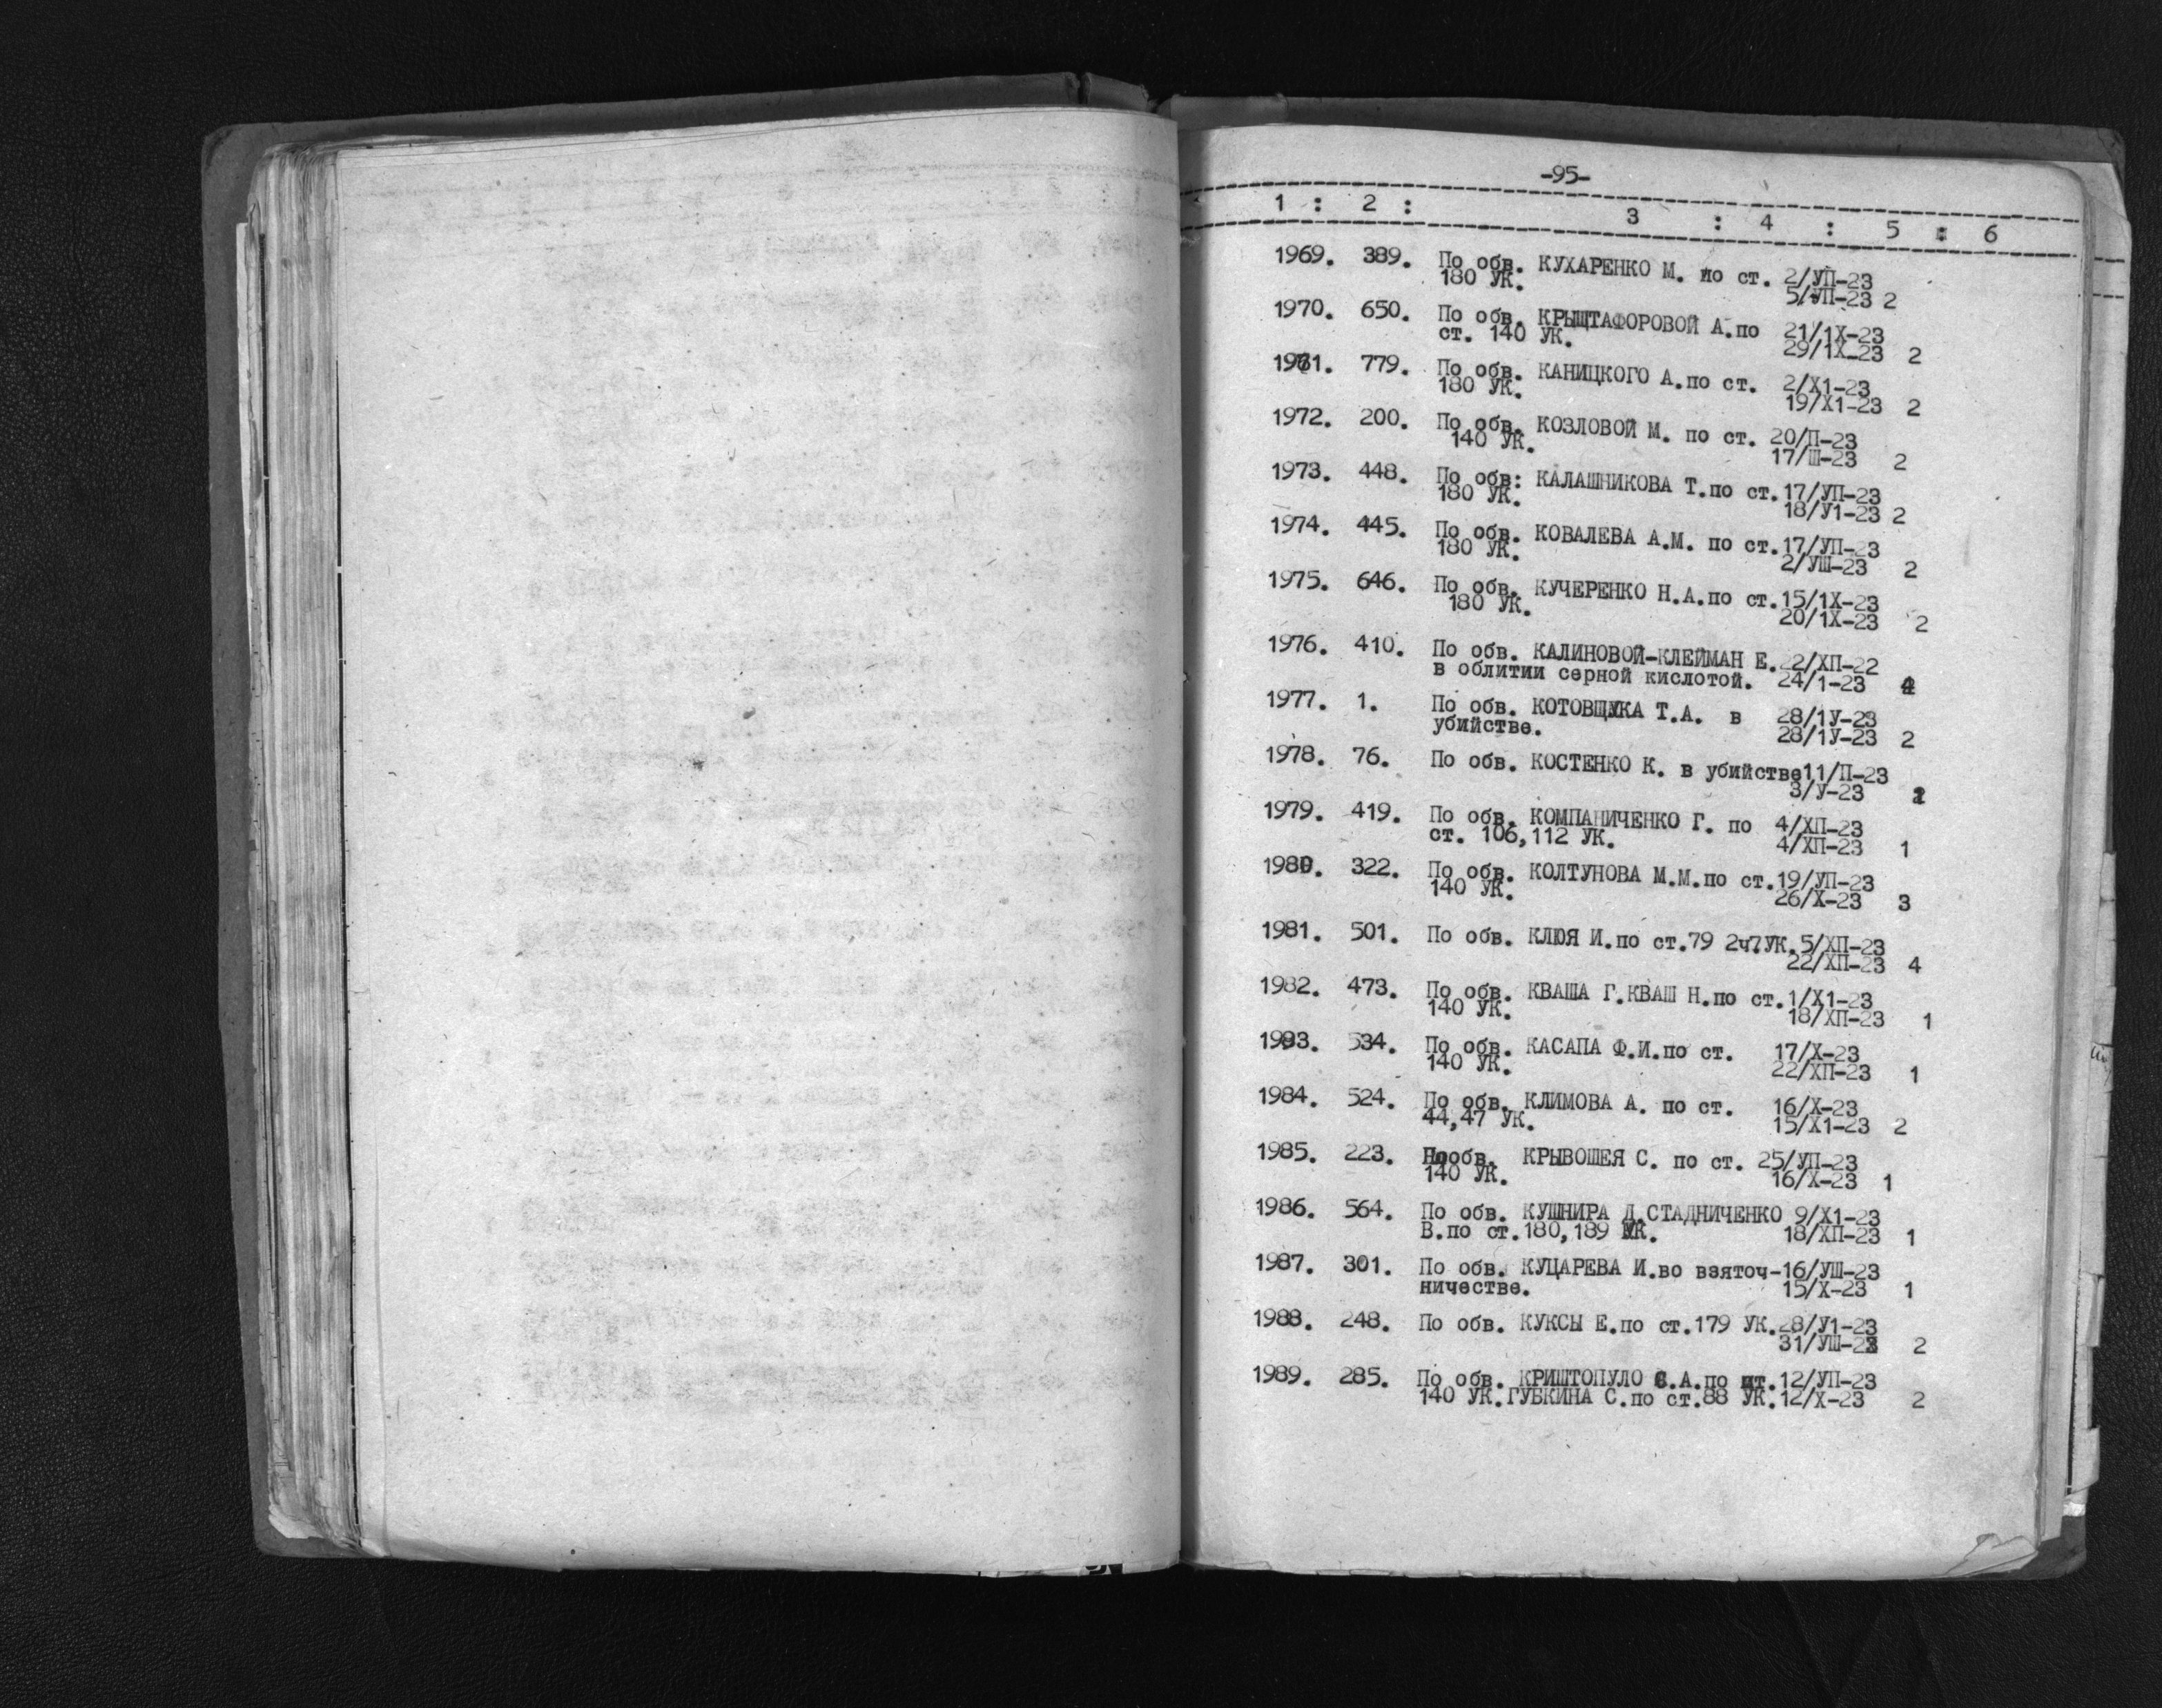 -95-
1 : 2 : 3 : 4 : 5 : 6
1969. 389. По обв. КУХАРЕНКО М. по ст. 2/УП-23
180 УК. 5/УП-23 2
1970. 650. По обв. КРЫЩТАФОРОВОЙ А.по 21/1Х-23
ст. 140 УК. 29/1Х-23 2
1971. 779. По обв. КАНИЦКОГО А.по ст. 2/Х1-23
180 УК. 19/Х1-23 2
1972. 200. По обв. КОЗЛОВОЙ М. по ст. 20/П-23
140 УК. 17/Ш-23 2
1973. 448. По обв: КАЛАШНИКОВА Т.по ст.17/УП-23
180 УК. 18/У1-23 2
1974. 445. По обв. КОВАЛЕВА А.М. по ст.17/УП-23
180 УК. 2/УШ-23 2
1975. 646. По обв. КУЧЕРЕНКО Н.А.по ст.15/1Х-23
180 УК. 20/1Х-23 2
1976. 410. По обв. КАЛИНОВОЙ-КЛЕЙМАН Е.22/ХП-22
в облитии серной кислотой. 24/1-23 4
1977. 1. По обв. КОТОВЩУКА Т.А. в 28/1У-23
убийстве. 28/1У-23 2
1978. 76. По обв. КОСТЕНКО К. в убийстве11/П-23
3/У-23
1979. 419. По обв. КОМПАНИЧЕНКО Г. по 4/ХП-23
ст. 106,112 УК. 4/ХП-23 1
1980. 322. По обв. КОЛТУНОВА М.М.по ст.19/УП-23
140 УК. 26/Х-23 3
1981. 501. По обв. КЛЮЯ И.по ст.79 2ч7УК.5/ХП-23
22/ХП-23 4
1982. 473. По обв. КВАША Г.КВАШ Н.по ст.1/Х1-23
140 УК. 18/ХП-23 1
1983. 534. По обв. КАСАПА Ф.И.по ст. 17/Х-23
140 УК. 22/ХП-23 1
1984. 524. По обв. КЛИМОВА А. по ст. 16/Х-23
44,47 УК. 15/Х1-23 2
1985. 223. По обв. КРЫВОШЕЯ С. по ст. 25/УП-23
140 УК. 16/Х-23 1
1986. 564. По обв. КУШНИРА Д.СТАДНИЧЕНКО 9/Х1-23
В.по ст.180,189 УК. 18/ХП-23 1
1987. 301. По обв. КУЦАРЕВА И.во взяточ-16/УШ-23
ничестве. 15/Х-23 1
1988. 248. По обв. КУКСЫ Е.по ст.179 УК.28/У1-23
31/УШ-23 2
1989. 285. По обв. КРИШТОПУЛО С.А.по ст.12/УП-23
140 УК.ГУБКИНА С.по ст.88 УК.12/Х-23 2